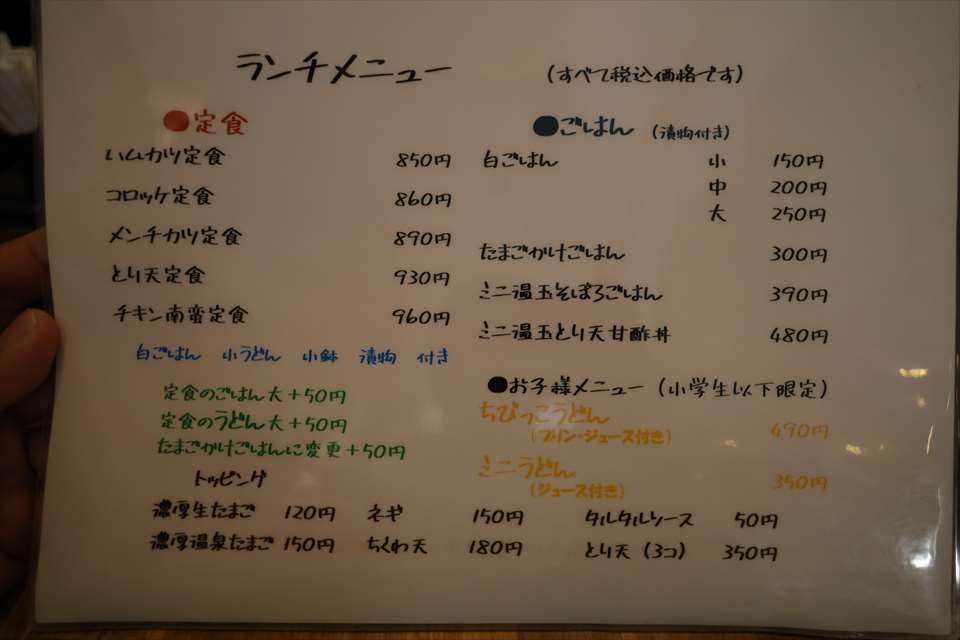 ランチメニュー (すべて税込価格です)
●定食
ハムカツ定食 850円
コロッケ定食 860円
メンチカツ定食 890円
とり天定食 930円
チキン南蛮定食 960円
白ごはん 小うどん 小鉢 漬物 付き
定食のごはん大+50円
定食のうどん大+50円
たまごかけごはんに変更+50円
●ごはん (漬物付き)
白ごはん 小 150円
中 200円
大 250円
たまごかけごはん 300円
ミニ温玉そぼろごはん 390円
ミニ温玉とり天甘酢丼 480円
●お子様メニュー (小学生以下限定)
ちびっこうどん
(プリン・ジュース付き) 490円
ミニうどん
(ジュース付き) 350円
トッピング
濃厚生たまご 120円 ネギ 150円 タルタルソース 50円
濃厚温泉たまご 150円 ちくわ天 180円 とり天(3コ) 350円